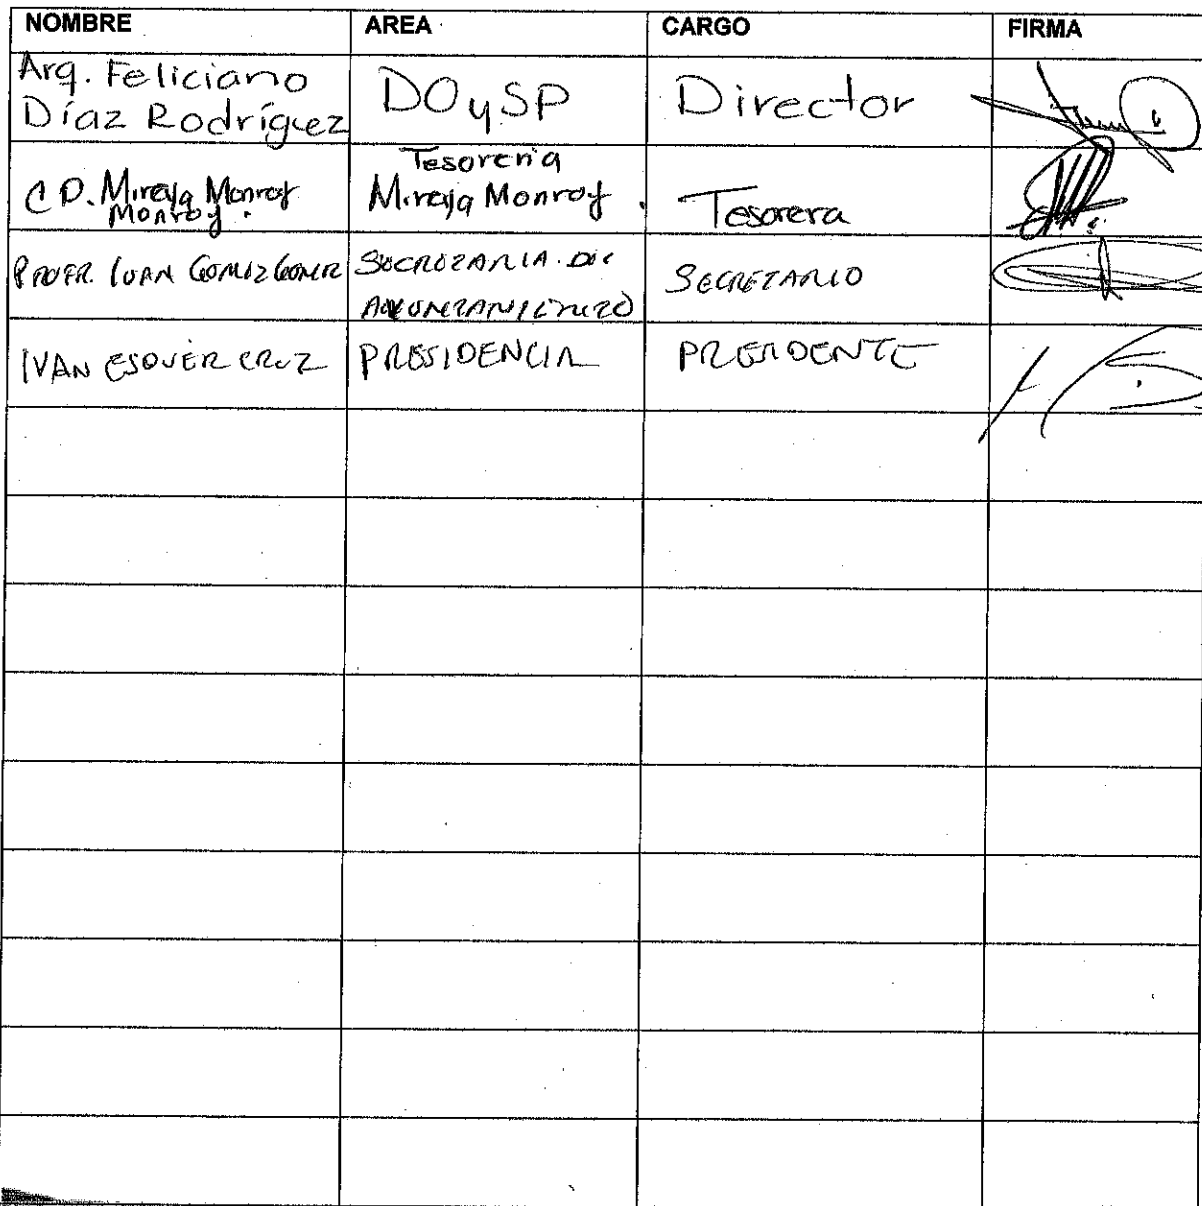 NOMBRE AREA CARGO FIRMA
Arq. Feliciano
Díaz Rodríguez
DOySP
Director
C.D. Mireya Monroy
Monroy.
Tesoreria
Mireya Monroy.
Tesorera
PROFR. IVAN GOMEZ GOMEZ
SECRETARIA DEL
AYUNTAMIENTO
SECRETARIO
IVAN ESQUER CRUZ
PRESIDENCIA
PRESIDENTE